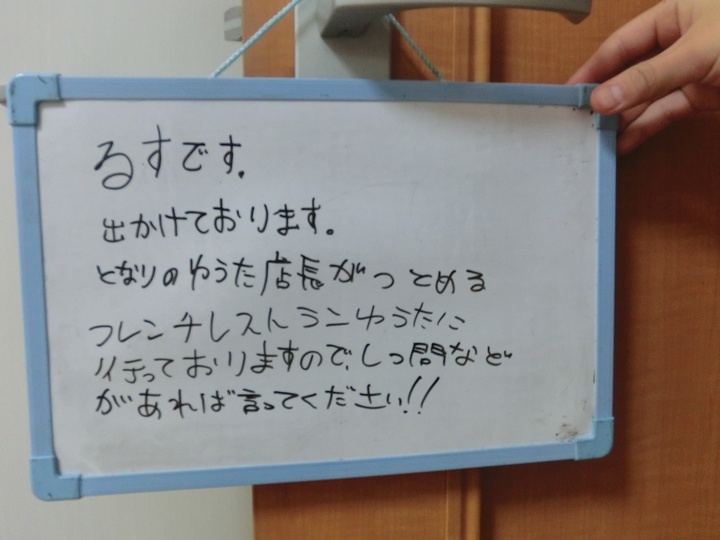 るすです.
出かけております。
となりのゆうた店長がつとめる
フレンチレストランゆうたに
行っておりますので、しつ問など
があれば言ってください!!